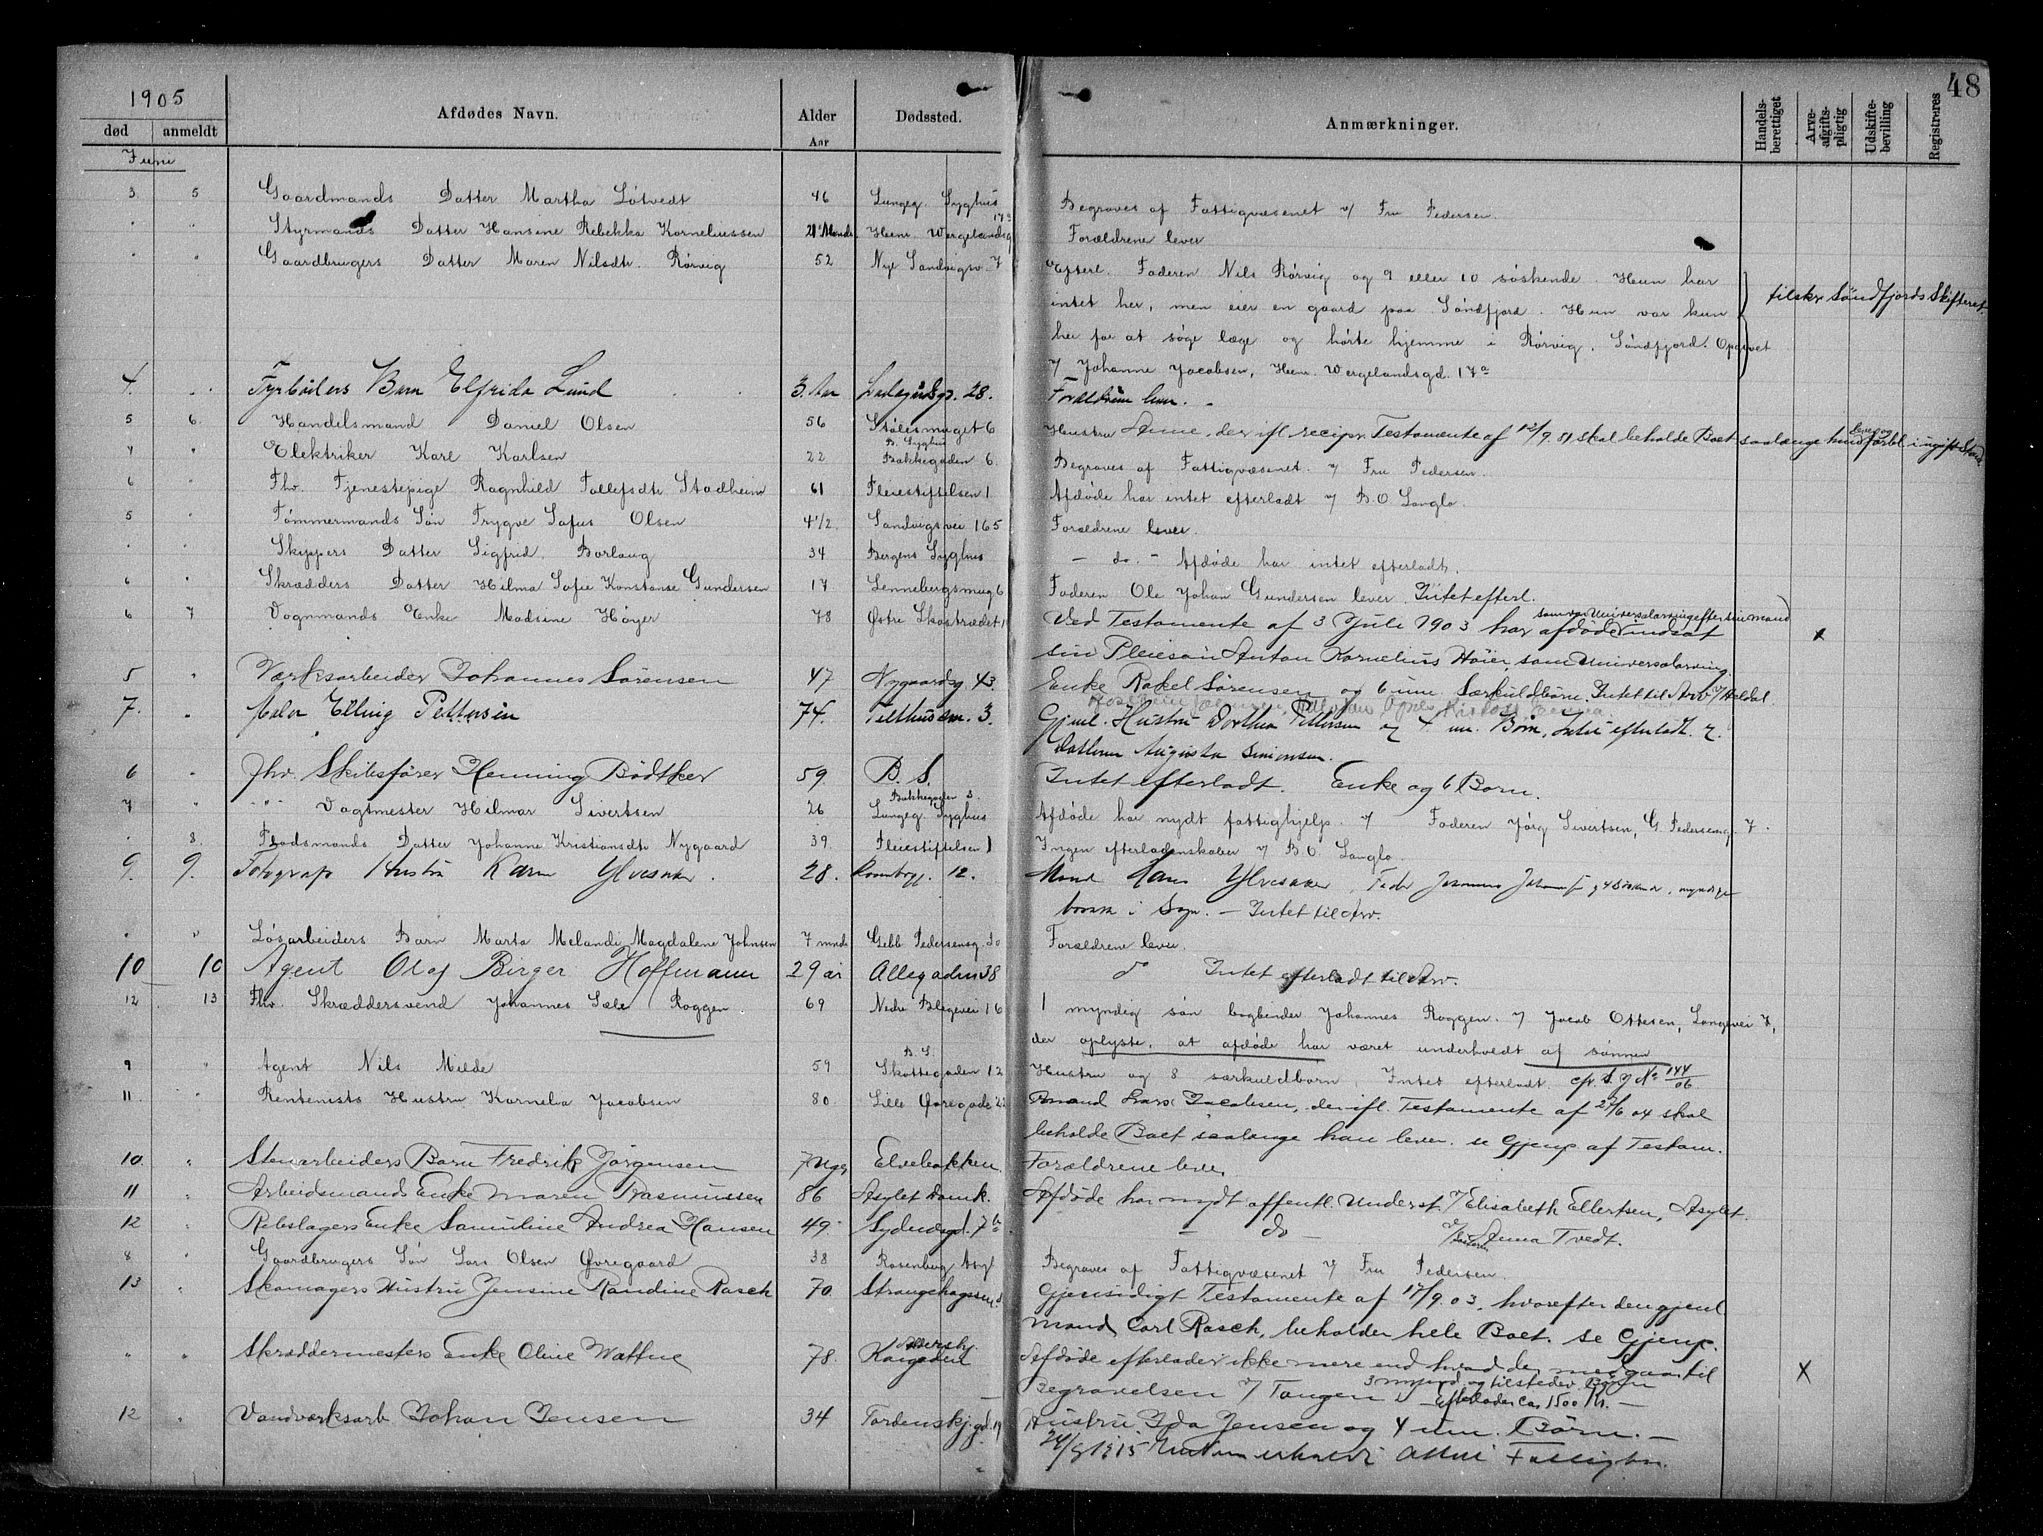 48
1905
død anmeldt Afdødes Navn. Alder Aar Dødssted. Anmærkninger. Handels-berettiget Arve-afgifts-pligtig Udskifte-bevilling Registreres
Juni
3 5 Gaardmands Datter Martha Løtvedt 46 Lungeg. Syghus Begraves af Fattigvæsenet v/ Fru Pedersen.
" " Styrmands Datter Hansine Rebekka Korneliussen 21 Mands. Henr. Wergelandsg 17a Forældrene lever
" " Gaardbrugers Datter Maren Nilsdtr. Rørvig 52 Nye Sandvigsv. 7 Efterl. Faderen Nils Rørvig og 9 eller 10 søskende. Hun har
intet her, men eier en gaard paa Søndfjord. Hun var kun tilskr Søndfjords Skifteret
her for at søge læge og hørte hjemme i Rørvig, Søndfjord. Opgivet
v/ Johanne Jacobsen, Henr. Wergelandsgd. 17a
4. " Fyrbøders Barn Elfrida Lund 3. Aar Ladegaardsg. 28. Forældrene lever.
5 6 Handelsmand Daniel Olsen 56 Stølesmuget 6 Hustru Anne, der ifl. recipr. Testamente af 12/9 81 skal beholde Boet saalænge hun lever og forbl. i ugift Stand
4 " Elektriker Karl Karlsen 22 B. Syghus Bakkegaden 6. Begraves af Fattigvæsenet v/ Fru Pedersen.
6 " Fhv. Tjenestepige Ragnhild Tollefsdtr Stadheim 61 Pleiestiftelsen 1 Afdøde har intet efterladt v/ B. O. Langlo.
5 " Tømmermands Søn Trygve Sofus Olsen 4 1/2. Sandvigsvei 165 Forældrene lever.
" " Skippers Datter Sigfrid Borlaug 34 Bergens Syghus — do. — Afdøde har intet efterladt.
6 " Skrædders Datter Hilma Sofie Konstanse Gundersen 17 Lennebergsmug 6 Faderen Ole Johan Gundersen lever. Intet efterl.
6 7 Vognmands Enke Madsine Høyer 78 Østre Skostrædet 1 Ved Testamente af 3 Juli 1903 har afdøde som var Universalarving efter sin mand indsat x
sin Pleiesøn Anton Kornelius Høier, som Universalarving
5 " Værksarbeider Johannes Sørensen 47 Nygaardsg 43. Enke Rakel Sørensen og 6 um. Særkuldbørn. Intet til Arv v/ Heldal.
7. " Maler Elling Pettersen 74. Telthussm. 3. Gjenl. Hustru Dorthea Pettersen og 7 um. Børn, Intet efterladt. v/
datteren Augusta Simonsen.
6 " Fhv. Skibsfører Henning Bødtker 59 B. S. Intet efterladt. Enke og 6 Børn.
7 " " Vagtmester Hilmar Sivertsen 26 Bakkegaden 3. Lungeg. Syghus Afdøde har nydt fattighjelp. v/ Faderen Jørg Sivertsen, G. Pedersensg. 7.
" 8. Plodsmands Datter Johanne Kristiansdtr Nygaard 39. Pleiestiftelsen 1 Ingen efterladenskaber v/ B. O. Langlo.
9. 9. Fotograf Hustru Karen Ylvesaker. 28. 12. Mand Hans Ylvesaker, Fader
i Sogn. — Intet til Arv.
" " Løsarbeiders Barn Marta Melandi Magdalene Johnsen 7 mnde Gebh Pedersensg. 30 Forældrene lever.
10 10 Agent Olaf Birger Hoffmann 29 år Allegaden 38 do Intet efterladt til Arv.
12 13 Fhv. Skræddersvend Johannes Sæle Roggen 69 Nedre Blegevei 16 1 myndig søn bogbinder Johannes Roggen. v/ Jacob Ottesen, Langevei 7,
der oplyste, at afdøde har været underholdt af sønnen
9 " Agent Nils Milde 59 B. S. Skottegaden 12 Hustru og 8 særkuldbørn. Intet efterladt. cfr. S. J No 144/06
11. " Renteniste Hustru Karnelia Jacobsen 80 Lille Øvregade 22 Mand Lars Jacobsen, der ifl. Testamente af 27/6 04 skal
beholde Boet saalænge han lever. se Gjenp af Testam.
10. " Stenarbeiders Barn Fredrik Jørgensen 7 Uger Elvebakken. Forældrene lever
11 " Arbeidsmands Enke Maren Rasmussen 86 Asylet Damk. Afdøde har nydt offentl. Underst. v/ Elisabeth Ellertsen, Asylet.
12 " Rebslagers Enke Samuline Andrea Hansen 49. Sydnæsgd. 7b — do — v/ Anna Tvedt.
8 " Gaardbrugers Søn Lars Olsen Øvregaard 38 Rosenberg Asyl Begraves af Fattigvæsenet v/ Fru Pedersen.
13 " Skomagers Hustru Jensine Randine Rasch 70. Strangehagen Gjensidigt Testamente af 17/9. 03, hvorefter den gjenl.
mand, Carl Rasch, beholder hele Boet. se Gjenp.
" " Skræddermesters Enke Oline Watne 78. Kongaden Afdøde efterlader ikke mere end hvad der medgaar til X
Begravelsen v/ Tangen 3 mynd. og tilstedev. Børn — Efterlader ca 1500 Kr. —
12 " Vandværksarb Johan Jensen 34 Tordenskj. gd. 19 Hustru Ida Jensen og 4 um. Børn. —
24/8 1915